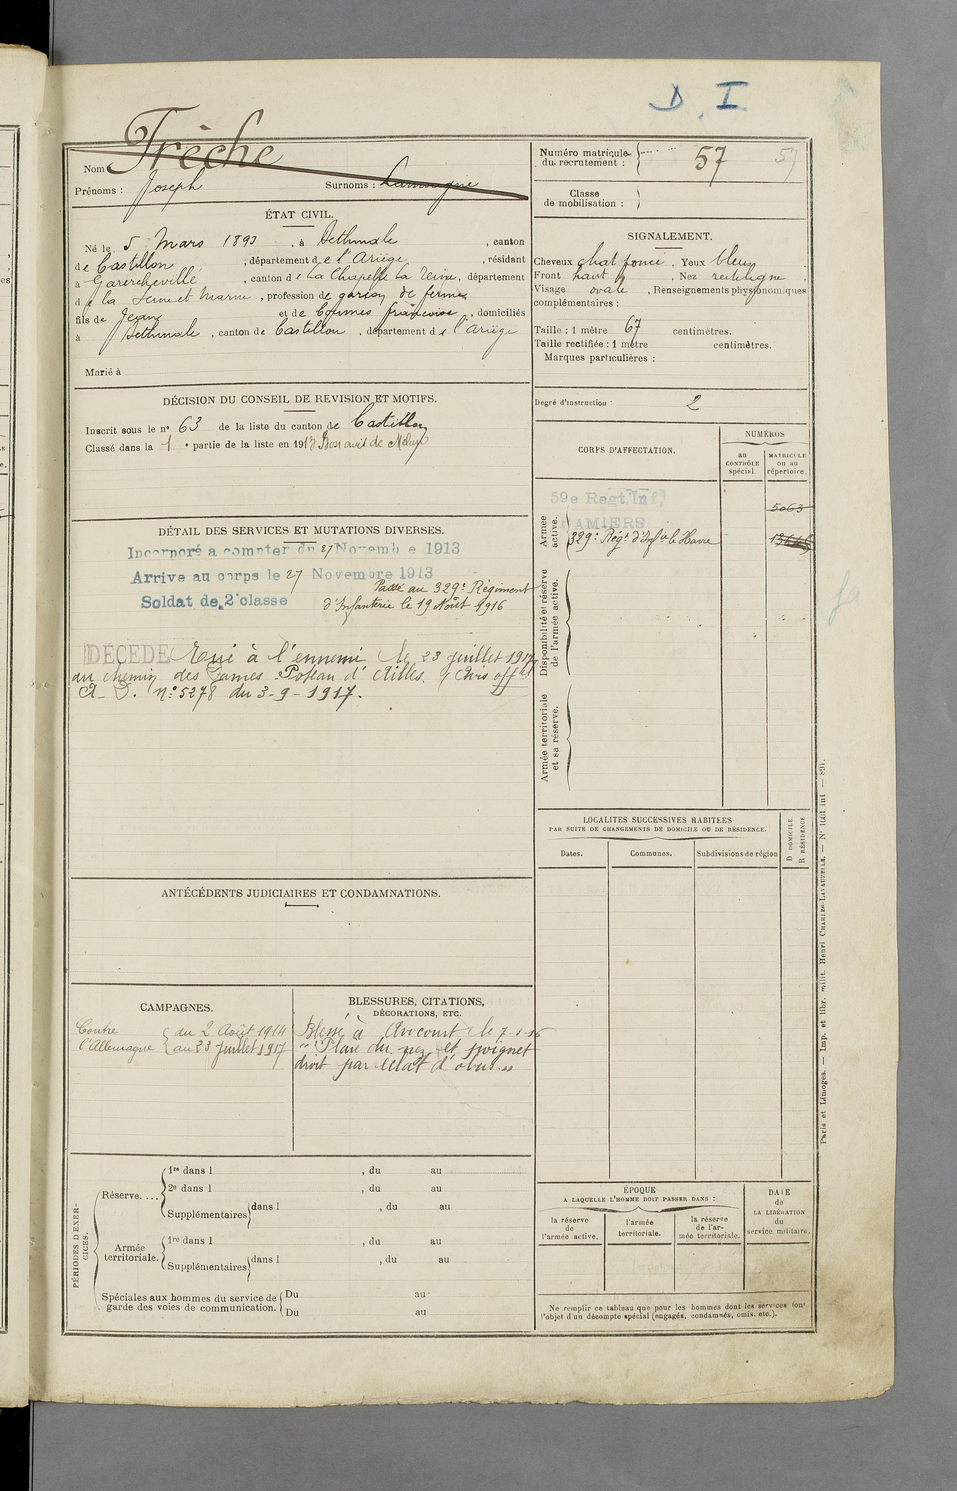 D. I
Nom Trèche
Prénoms : Joseph Surnoms :
Numéro matricule du recrutement : 57 57
Classe de mobilisation :
ÉTAT CIVIL.
Né le 5 Mars 1893, à Sethmale, canton
de Castillon, département de l'Ariège, résidant
à Garercheville, canton de La Chapelle la Reine, département
de la Seine et Marne, profession de garçon de ferme
fils de Jean et de Coumes françoise, domiciliés
à Sethmale, canton de Castillon, département de l'Ariège
Marié à
SIGNALEMENT.
Cheveux chat foncé. Yeux bleus
Front haut, Nez rectiligne
Visage ovale, Renseignements physionomiques
complémentaires :
Taille : 1 mètre 67 centimètres.
Taille rectifiée : 1 mètre centimètres.
Marques particulières :
DÉCISION DU CONSEIL DE REVISION ET MOTIFS.
Inscrit sous le n° 63 de la liste du canton de Castillon
Classé dans la 1e partie de la liste en 1913 Bon avis de Melun
Degré d'instruction : 2
CORPS D'AFFECTATION.
NUMÉROS
au CONTRÔLE spécial
MATRICULE ou au répertoire.
Armée active.
59e Regt. Inf.
PAMIERS
5063
329e Régt d'Infie le Havre
Disponibilité et réserve de l'armée active.
Armée territoriale et sa réserve.
DÉTAIL DES SERVICES ET MUTATIONS DIVERSES.
Incorporé a compter du 27 Novembre 1913
Arrive au corps le 27 Novembre 1913
Soldat de 2e classe
Passé au 329e Régiment
d'Infanterie le 19 Août 1916
DÉCÉDÉ Tué à l'ennemi le 23 juillet 1917
au chemin des Dames Poteau d'Ailles. Avis offel
A. D. n° 5278 du 3-9-1917.
LOCALITES SUCCESSIVES HABITEES
PAR SUITE DE CHANGEMENTS DE DOMICILE OU DE RÉSIDENCE.
Dates.
Communes.
Subdivisions de région
D DOMICILE.
R RÉSIDENCE
ANTÉCÉDENTS JUDICIAIRES ET CONDAMNATIONS.
CAMPAGNES.
Contre l'Allemagne
du 2 Août 1914
au 23 Juillet 1917
BLESSURES, CITATIONS,
DÉCORATIONS, ETC.
Blessé à Avocourt le 7-1-16
"Plaie du nez et poignet
droit par éclat d'obus."
PÉRIODES D'EXERCICES.
Réserve....
1re dans l , du au
2e dans l , du au
Supplémentaires dans l , du au
Armée territoriale.
1re dans l , du au
Supplémentaires dans l , du au
Spéciales aux hommes du service de garde des voies de communication.
Du au
Du au
ÉPOQUE
A LAQUELLE L'HOMME DOIT PASSER DANS :
la réserve de l'armée active.
l'armée territoriale.
la réserve de l'armée territoriale.
DATE de LA LIBÉRATION du service militaire.
Ne remplir ce tableau que pour les hommes dont les services font
l'objet d'un décompte spécial (engagés, condamnés, omis, etc.).
Paris et Limoges. — Imp. et libr. milit. Henri CHARLES-LAVAUZELLE. —